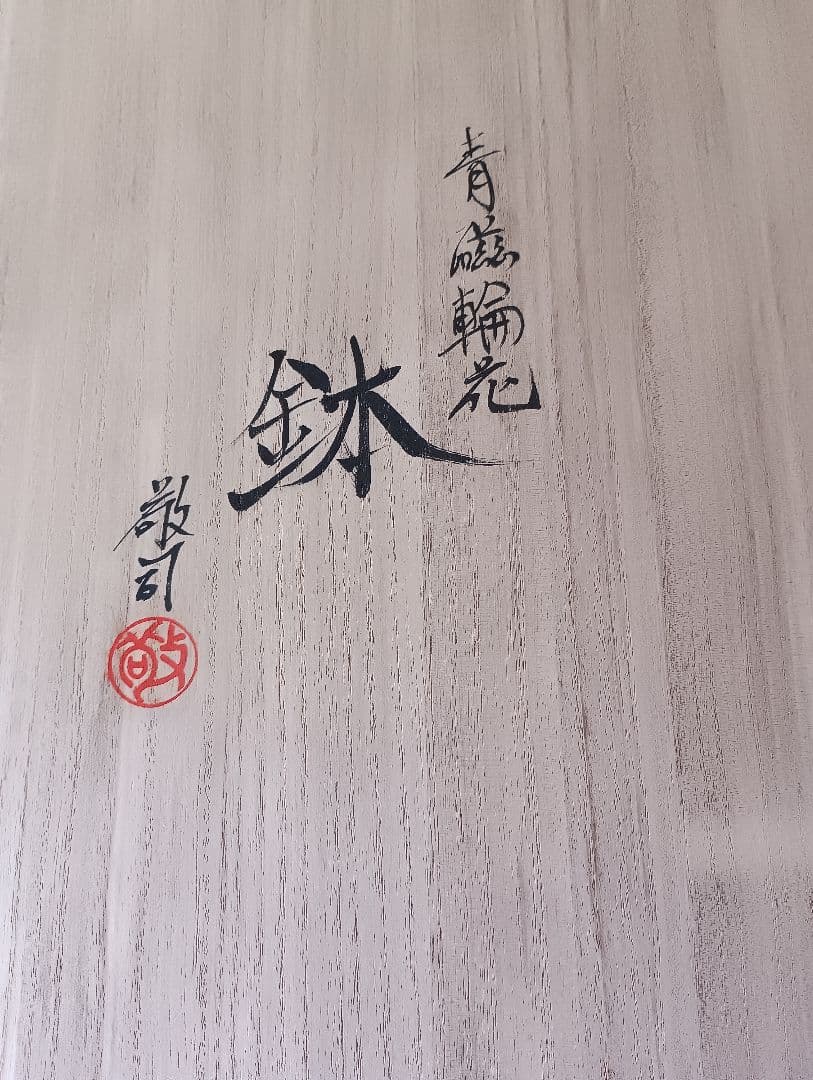 青磁輪花
鉢
敬司
敬